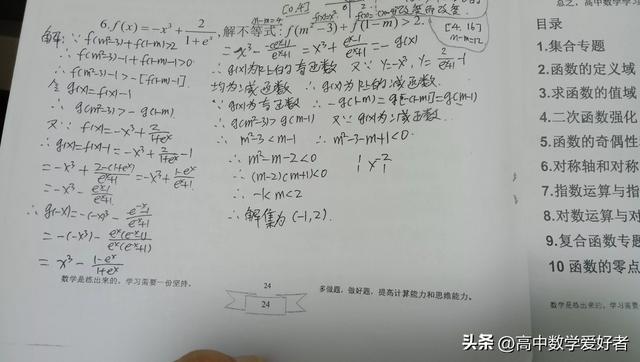 [0,4]
m-m=4.
6. f(x)=-x³+2/(1+eˣ), 解不等式: f(m²-3)+f(1-m)>2.
[4,16]
m-m=12
解: ∵ f(m²-3)+f(1-m)>2
∴ f(m²-3)-1+f(1-m)-1>0
∴ f(m²-3)-1>-[f(1-m)-1]
令 g(x)=f(x)-1
∴ g(m²-3)>-g(1-m).
又∵ f(x)=-x³+2/(1+eˣ)
∴ g(x)=f(x)-1=-x³+2/(1+eˣ)-1
=-x³+(2-(1+eˣ))/(eˣ+1)=-x³+(1-eˣ)/(eˣ+1)
=-x³-(eˣ-1)/(eˣ+1)
∴ g(-x)=-(-x)³-(e⁻ˣ-1)/(e⁻ˣ+1)
=-(-x)³-(eˣ(e⁻ˣ-1))/(eˣ(e⁻ˣ+1))
=x³-(1-eˣ)/(1+eˣ)
=x³-(-(eˣ-1))/(eˣ+1)=x³+(eˣ-1)/(eˣ+1)=-g(x)
∴ g(x)为R上的奇函数 又∵ y=-x³, y=2/(eˣ+1)-1
均为减函数 ∴ g(x)为R上的减函数.
∵ g(x)为奇函数 ∴ -g(1-m)=g[-(1-m)]=g(m-1)
∴ g(m²-3)>g(m-1) 又∵ g(x)为减函数.
∴ m²-3<m-1 ∴ m²-3-m+1<0.
∴ m²-m-2<0
∴ (m-2)(m+1)<0
∴ -1<m<2
∴ 解集为 (-1,2).
数学是练出来的，学习需要一份坚持。
24
24
多做题，做好题，提高计算能力和思维能力。
目录
1.集合专题
2.函数的定义域
3.求函数的值域
4.二次函数强化
5.函数的奇偶性
6.对称轴和对称
7.指数运算与指
8.对数运算与对
9.复合函数专题
10 函数的零点
数学是练出来的，学习需
头条 @高中数学爱好者